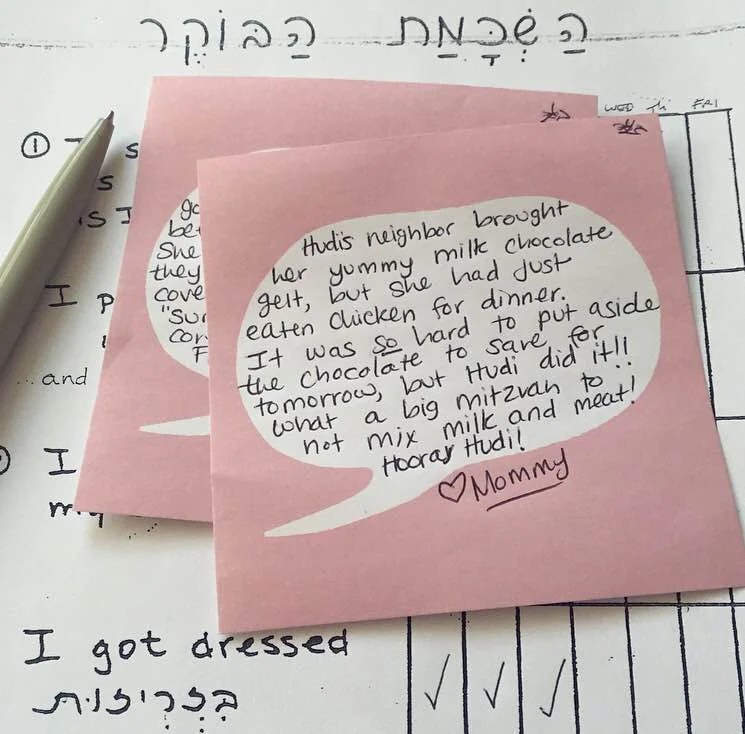 הַשְׁכָּמַת הַבּוֹקֶר
WED Th FRI
①
s
s
is I
I p
... and
I
my
go
be
She
they
cove
"Sur
Cor
F
Hudi's neighbor brought
her yummy milk chocolate
gelt, but she had just
eaten chicken for dinner.
It was so hard to put aside
the chocolate to save for
tomorrow, but Hudi did it!!
What a big mitzvah to
not mix milk and meat!
Hooray Hudi!
♡Mommy
I got dressed
✓ ✓ ✓
בִּזְרִיזוּת